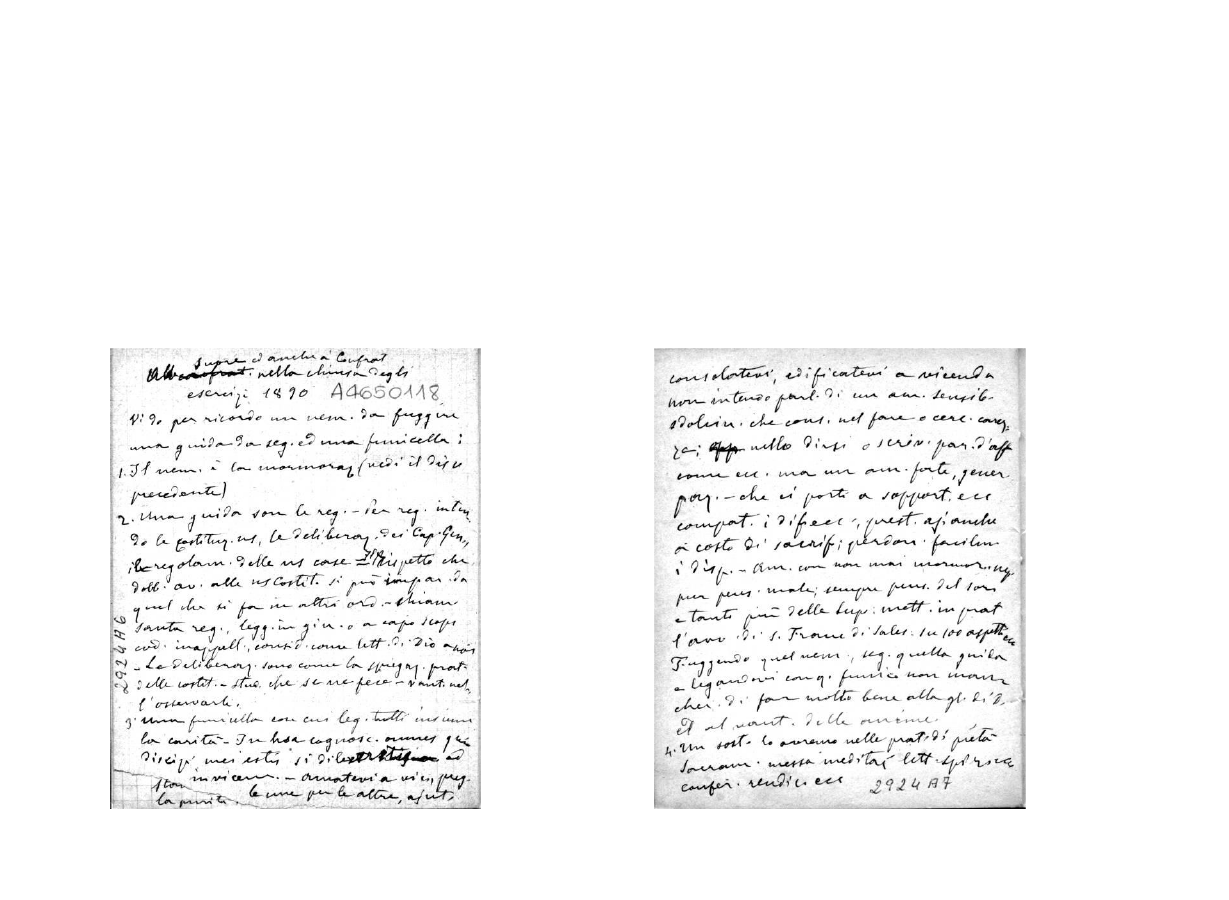 Suore ed anche a' Confrat
Alle confrat. nella chiusa degli
esercizi 1890 A4650118
Vi do per ricordo un nem. da fuggire
una guida da seg. ed una funicella:
1. Il nem. è la mormoraz (vedi il disc
precedente)
2. Una guida son le reg. - Per reg. inten
do le costituz. ns, le deliberaz. dei Cap. Gen.,
il regolam. delle ns case rispetto che
dobb. av. alle ns Costit. si può impar. da
quel che si fa in altri ord. - chiam.
santa reg., legg. in gin. o a capo scop
cod. inappell., consid. come lett. di Dio a noi
- Le deliberaz. sono come la spiegaz. prat.
delle costit. - stud. che se ne fece - vant. nel
l'osservarle.
3. Una funicella con cui leg. tutti insieme
la carità - In hoc cognosc. omnes quia
discip. mei estis si dilect ad
invicem. - amatevi a vic., preg.
le une per le altre, ajut.
la
2924A6
consolatevi, edificatevi a vicenda
non intendo parl. di un am. sensib.
sdolcin. che cons. nel fare o cerc. carez
ze; nello dirsi o scriv. par. d'aff
come ecc. ma un am. forte, gener
paz. - che ci porti a support. ecc
compat. i difett., prest. aj. anche
a costo di sacrif; perdon. facilm
i disp. - Am. con non mai mormor. nep
pur pens. male; sempre pens. del son
e tanto più delle Sup. mett. in prat
l'avv. di S. Franc di Sales. Su 100 aspetti ecc
Fuggendo quel nem., seg. quella guida
e legandovi con q. funic. non manc
cher. di far molto bene alla gl. di D.
et al vant. delle anime.
4. Un sost. lo avremo nelle prat. di pietà
Sacram. messa meditaz lett. spir
confer. rendic. ecc 2924A7